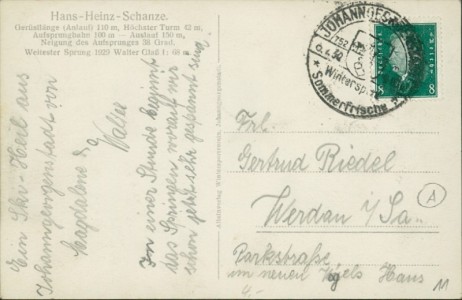 Hans-Heinz-Schanze.
Gerüstlänge (Anlauf) 110 m, Höchster Turm 42 m,
Aufsprunghahn 100 m — Auslauf 150 m,
Neigung des Aufsprunges 38 Grad.
Weitester Sprung 1929 Walter Glaß 60 m
Ein Ski-Heil aus
Johanngeorgenstadt von
Magdalene u.
Walter
In einer Stunde beginnt
das Springen worauf wir
schon jetzt sehr gespannt sind.
JOHANNGEORG
6.4.30
Wintersp
* Sommerfrische
8 8
Frl.
Gertrud Riedel
Werdau i/Sa.
Parkstraße
im neuen Vogels Haus
A